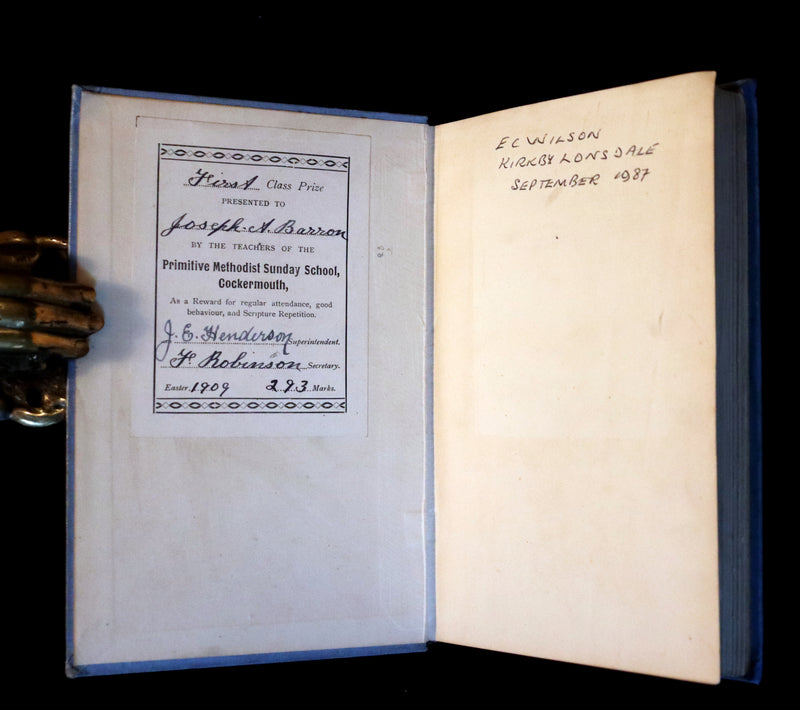 First Class Prize
PRESENTED TO
Joseph. A. Barron
BY THE TEACHERS OF THE
Primitive Methodist Sunday School,
Cockermouth,
As a Reward for regular attendance, good
behaviour, and Scripture Repetition.
J. E. Henderson Superintendent.
F. Robinson Secretary.
Easter 1909 293 Marks.
E C WILSON
KIRKBY LONSDALE
SEPTEMBER 1987